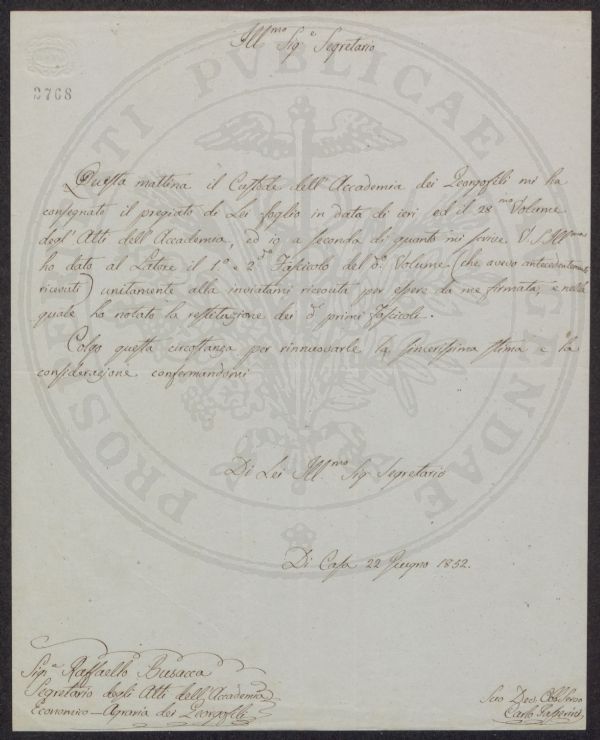 Ill.mo Sig.e Segretario
2768
PROSPERITATI PVBLICAE AVGENDAE
Questa mattina il Custode dell'Accademia dei Georgofili mi ha
consegnato il pregiato di Lei foglio in data di ieri ed il 28.mo Volume
degl'Atti dell'Accademia, ed io a seconda di quanto mi scrive V.S. Ill.ma
ho dato al Latore il 1.o e 2.do Fascicolo del d.o Volume (che avevo antecedentemente
ricevuti) unitamente alla inviatami ricevuta per essere da me firmata, e nella
quale ho notato la restituzione dei d.i primi Fascicoli.
Colgo questa circostanza per rinnuovarle la sincerissima stima e la
considerazione confermandomi
Di Lei Ill.mo Sig.e Segretario
Di Casa 22 Giugno 1852.
Sig.e Raffaello Busacca
Segretario degli Atti dell'Accademia
Economico-Agraria dei Georgofili
Suo Dev. Obb. Servo
Carlo